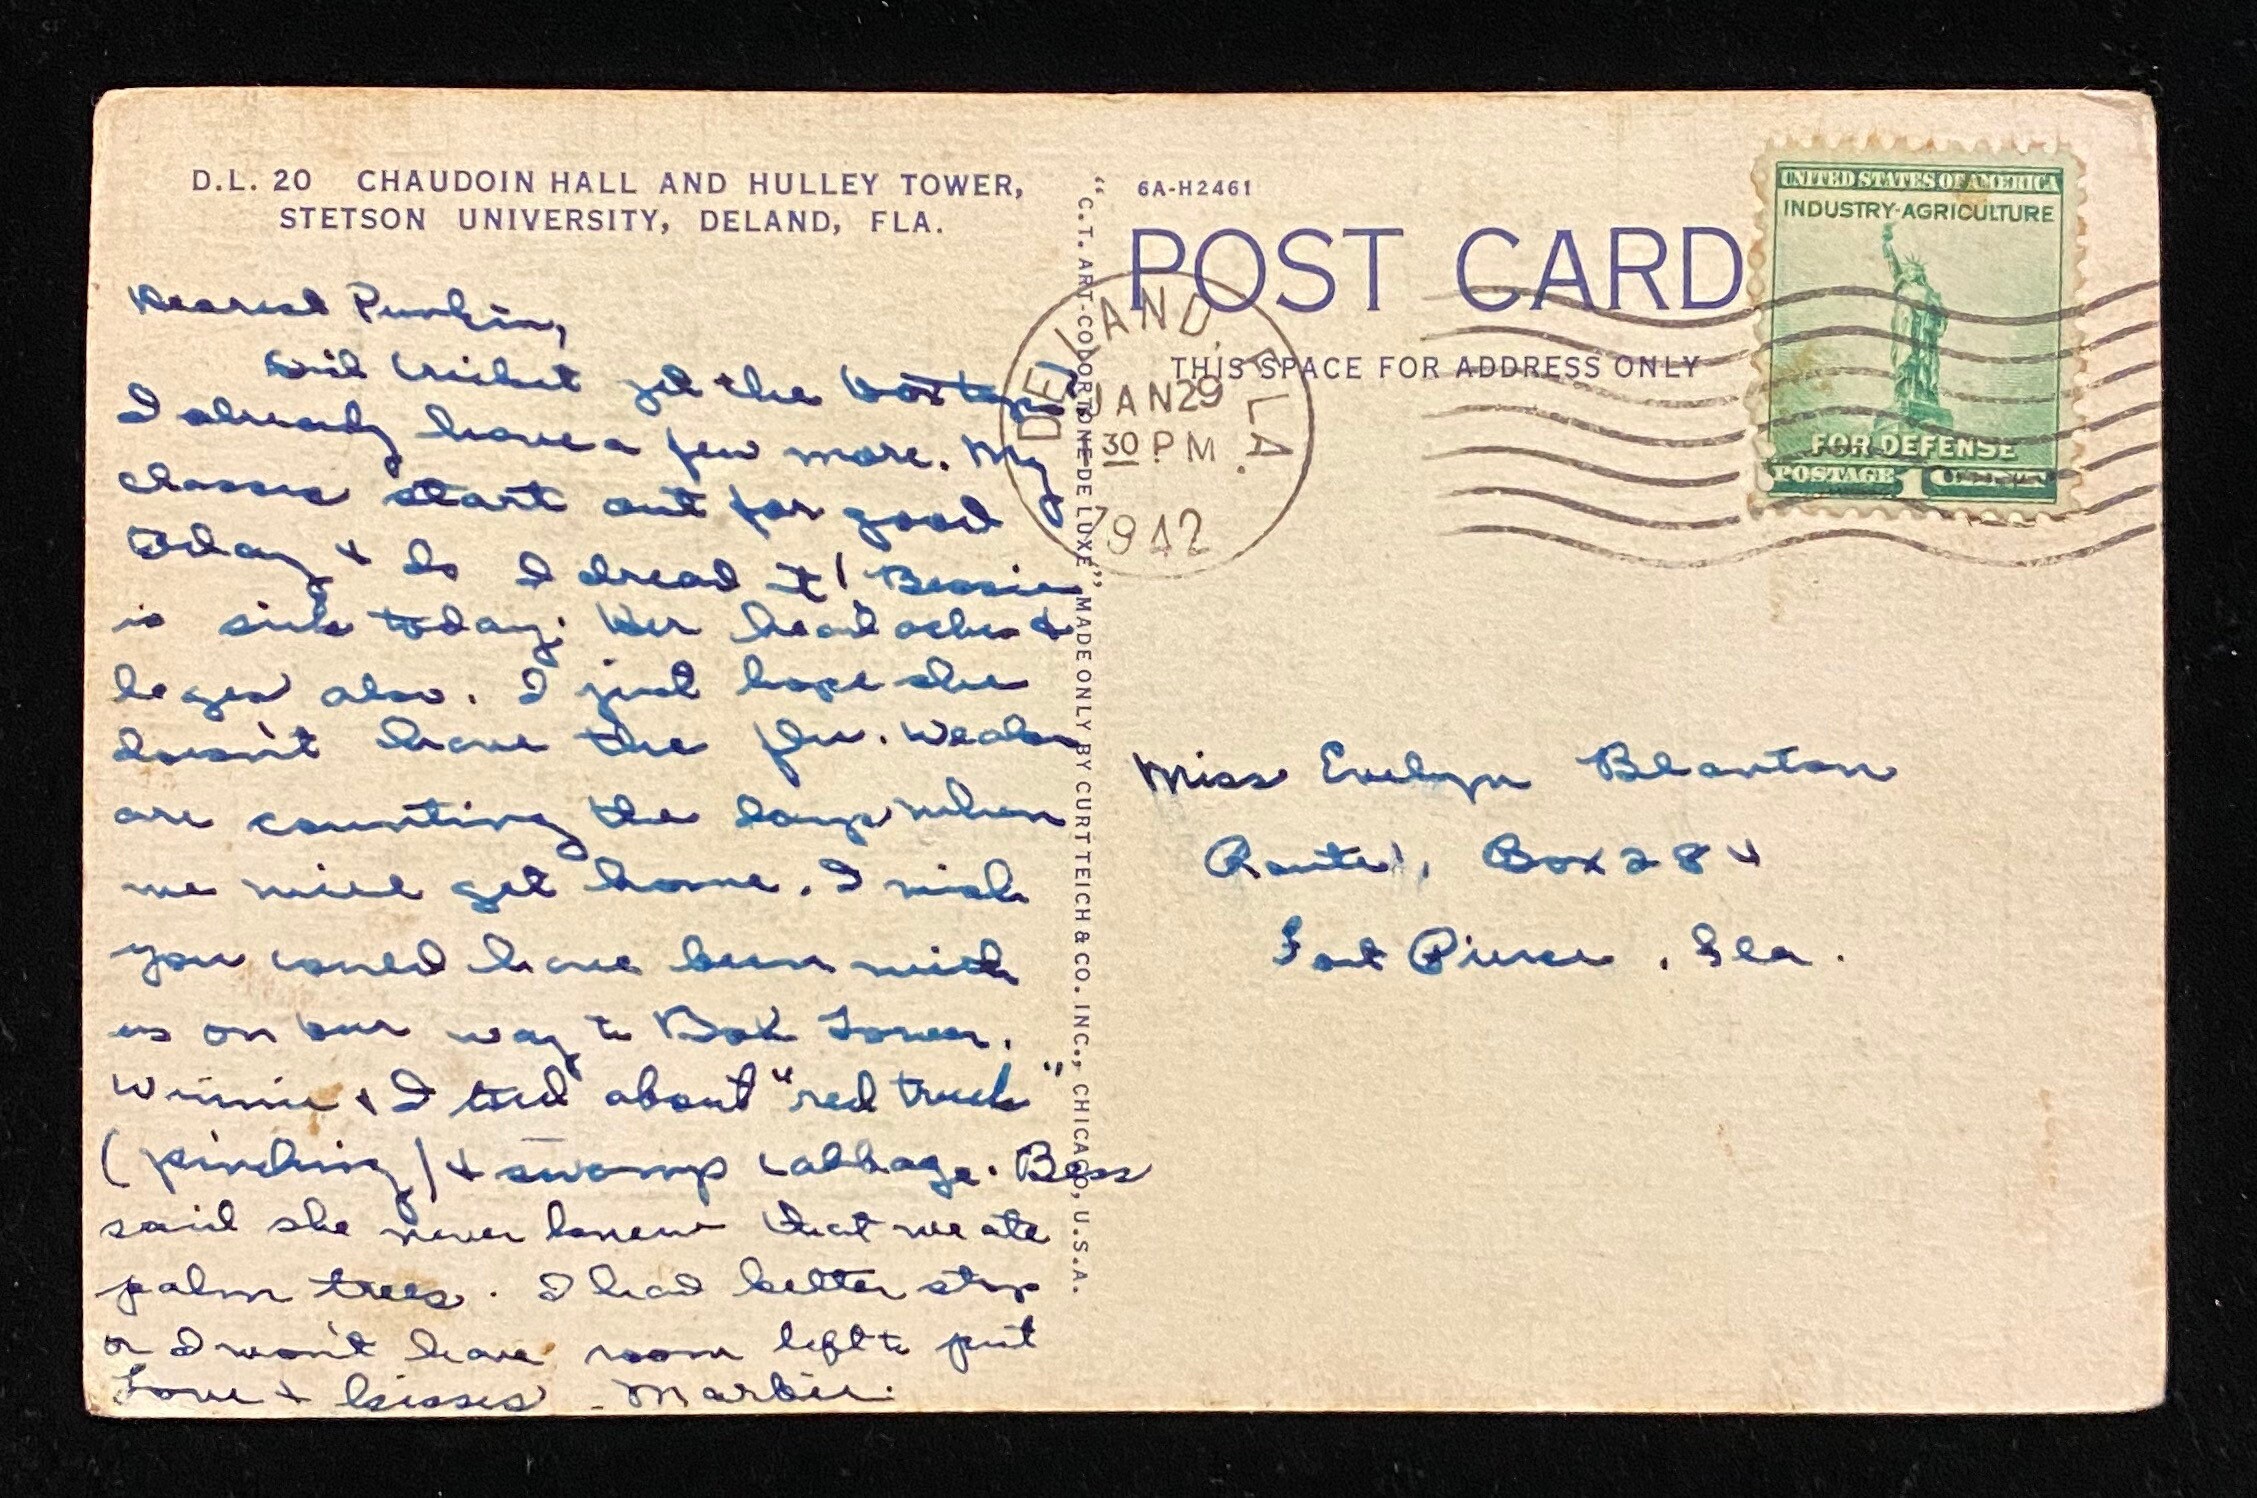 D.L. 20 CHAUDOIN HALL AND HULLEY TOWER,
STETSON UNIVERSITY, DELAND, FLA.
Dearest Punkin,
Did Cricket get the
I already have a few more. My
classes start out for good
Today & do I dread it! Bessie
is sick today; Her head aches &
leges also. I just hope she
doesn't have the flu. We also
are counting the days when
we will get home. I wish
you could have been with
us on our way to Bok Tower.
Winnie & I told about "red truck"
(pinching) & swamp cabbage. Bess
said she never knew that we ate
palm trees. I had better stop
or I won't have room left to put
Love & kisses - Marbie.
"C.T. ART-COLORTONE DE LUXE" MADE ONLY BY CURT TEICH & CO. INC., CHICAGO, U.S.A.
6A-H2461
POST CARD
THIS SPACE FOR ADDRESS ONLY
DELAND, FLA.
JAN 29
30 PM
1942
UNITED STATES OF AMERICA
INDUSTRY-AGRICULTURE
FOR DEFENSE
POSTAGE 1
Miss Evelyn Blanton
Route 1, Box 284
Fort Pierce, Fla.